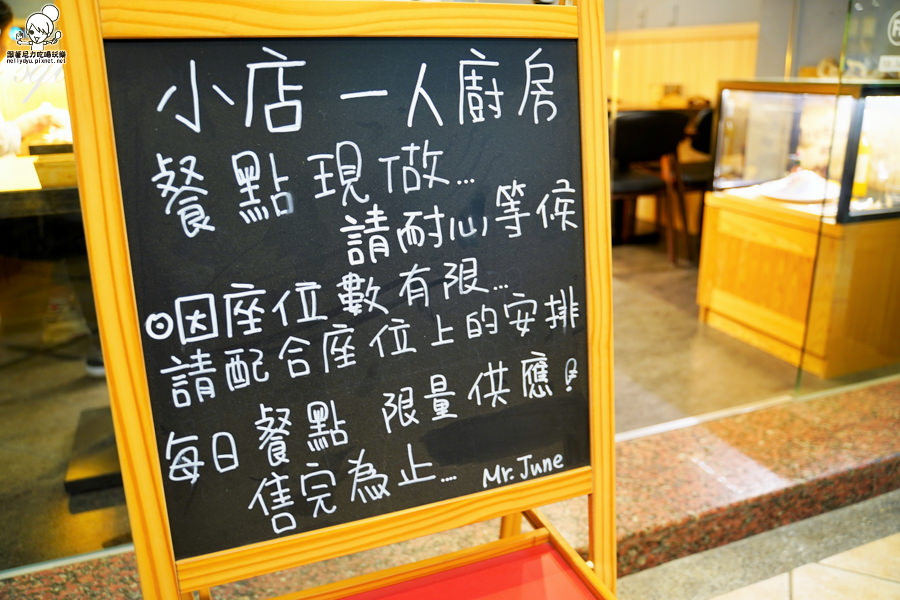 跟著尼力吃喝玩樂
nellydyu.pixnet.net
小店一人廚房
餐點現做...
請耐心等候
◎因座位數有限...
請配合座位上的安排
每日餐點 限量供應!
售完為止...
Mr. June